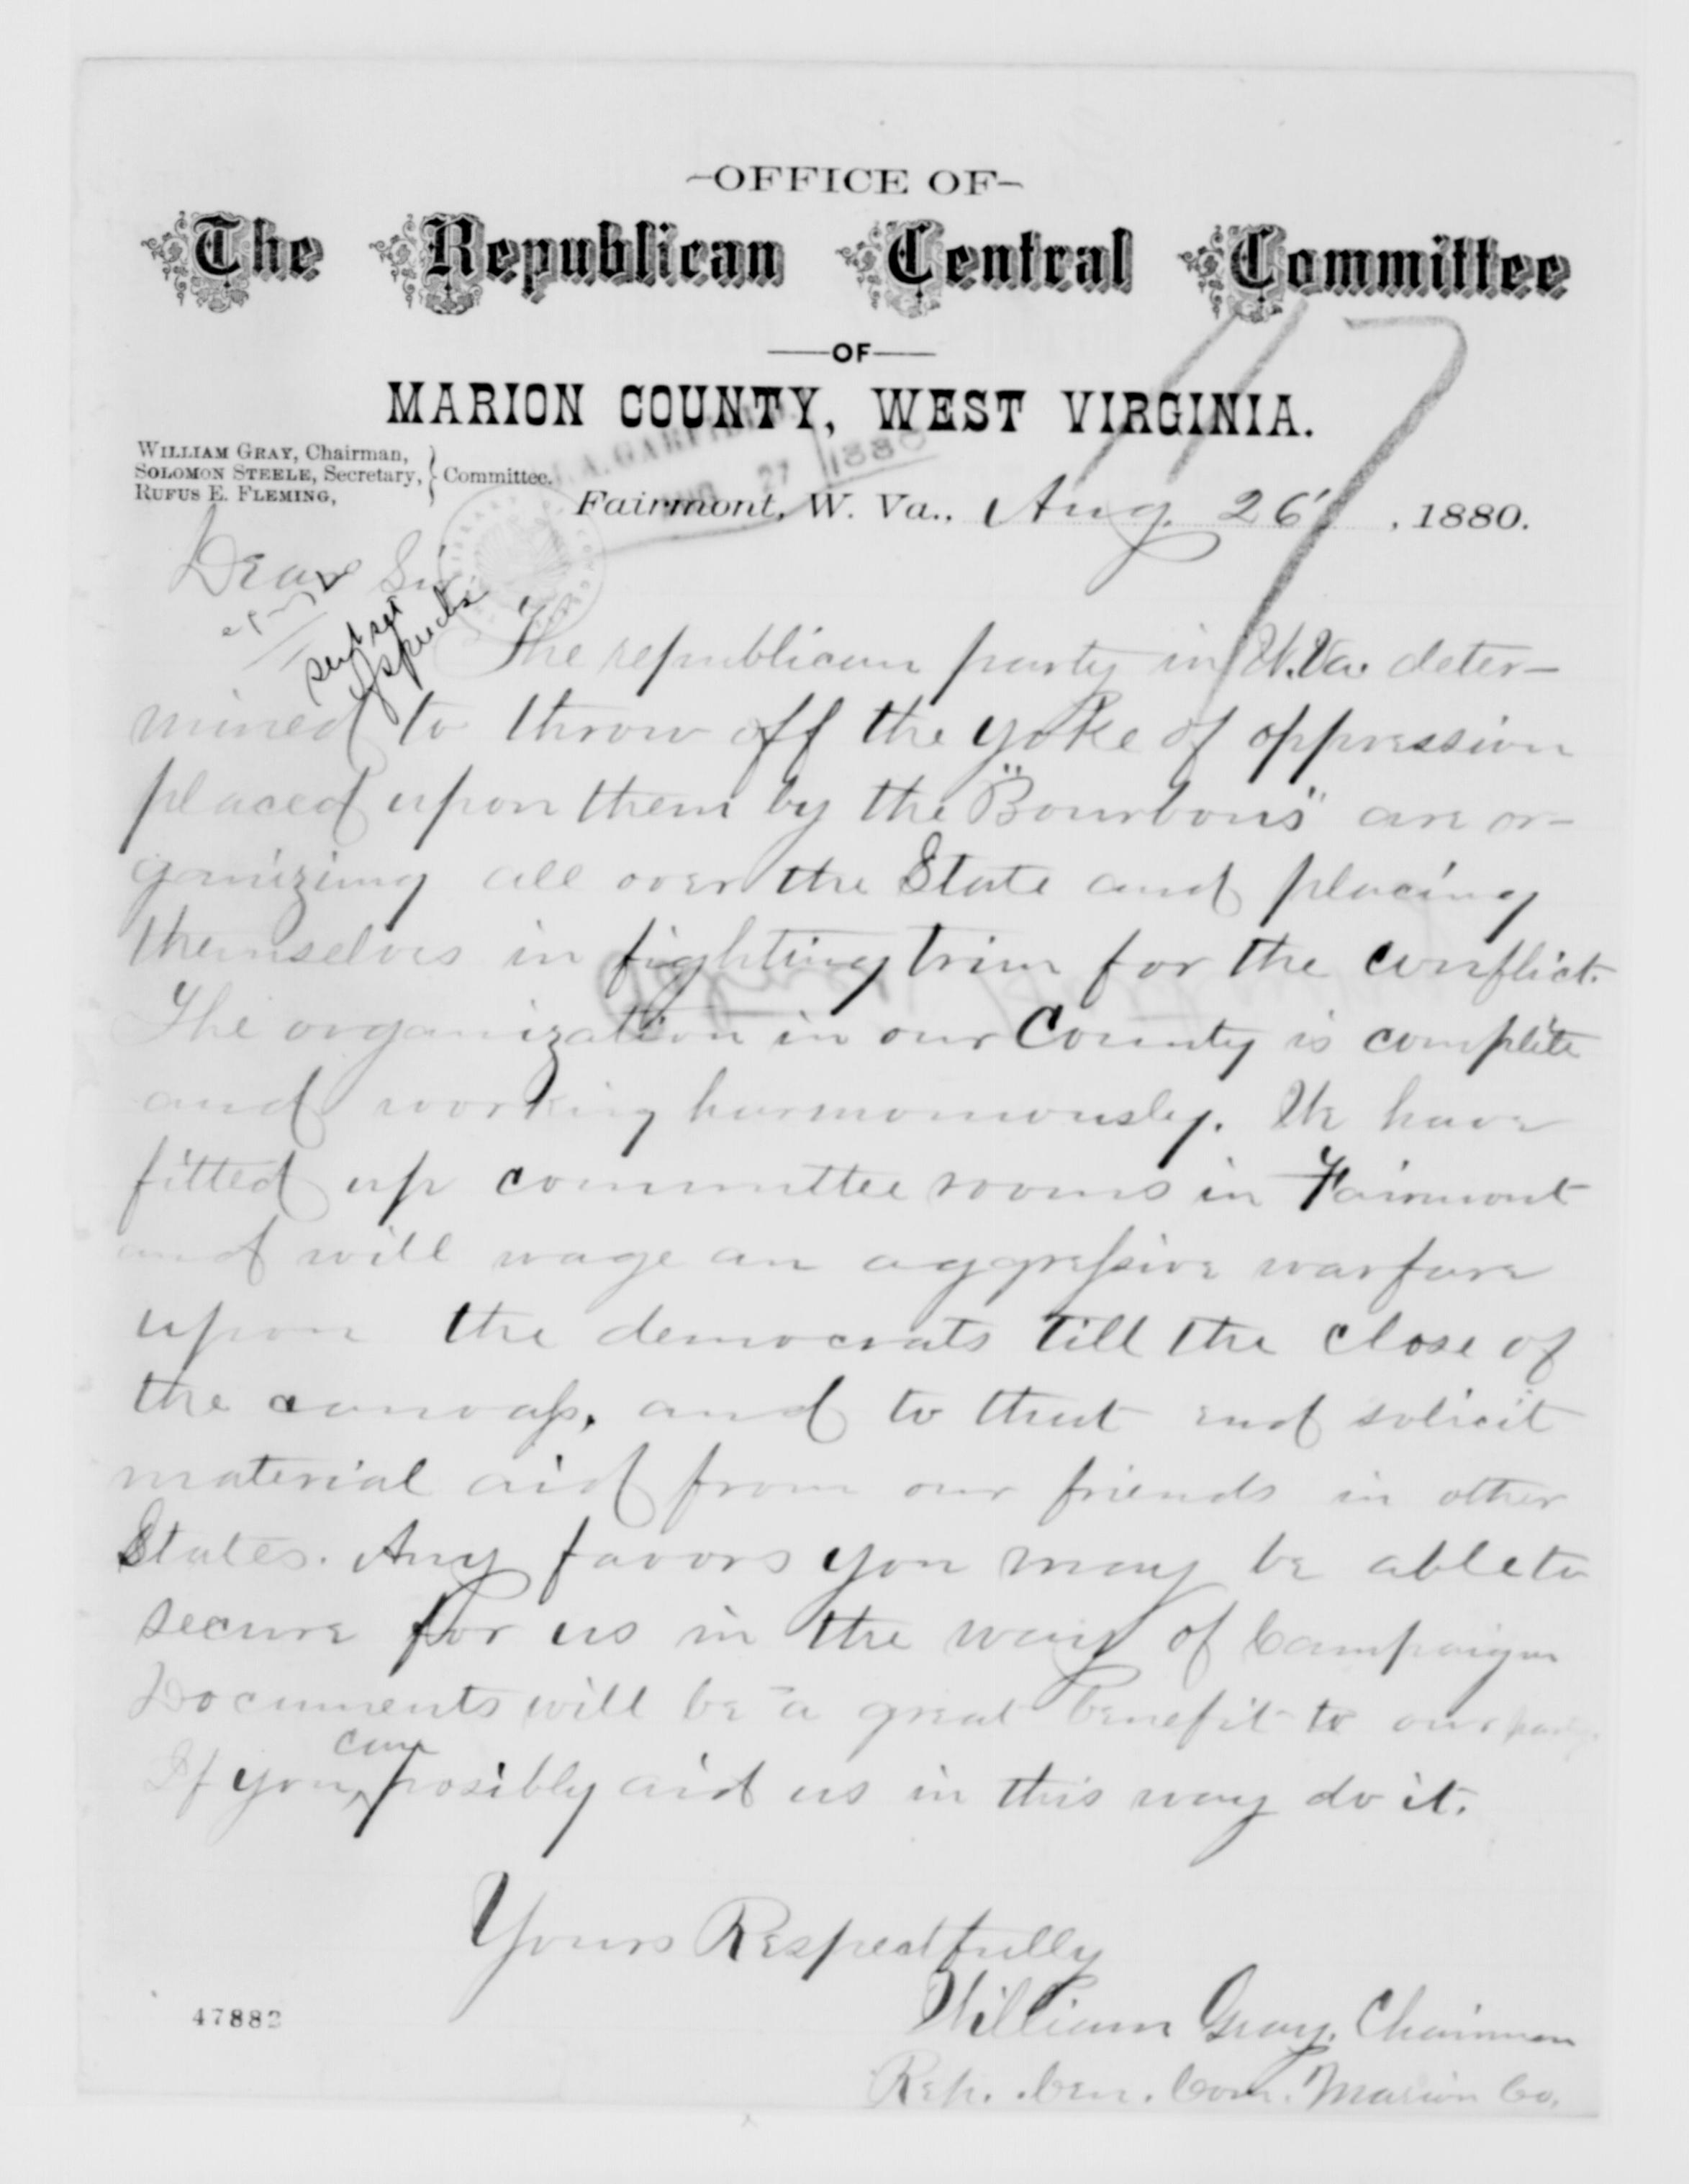 -OFFICE OF-
The Republican Central Committee
—OF—
MARION COUNTY, WEST VIRGINIA.
WILLIAM GRAY, Chairman,
SOLOMON STEELE, Secretary,
RUFUS E. FLEMING,
Committee.
J. A. GARFIELD.
AUG 27 1880
Fairmont, W. Va., Aug. 26 , 1880.
47
Dear Sir
send set
of speechs
The republican party in W.Va. deter-
mined to throw off the yoke of oppression
placed upon them by the "Bourbons" are or-
ganizing all over the State and placing
themselves in fighting trim for the conflict.
The organization in our County is complete
and working harmoniously. We have
fitted up committee rooms in Fairmont
and will wage an aggressive warfare
upon the democrats till the close of
the canvass, and to that end solicit
material aid from our friends in other
States. Any favors you may be able to
secure for us in the way of Campaign
Documents will be a great benefit to our party.
can
If you posibly aid us in this way do it.
Yours Respectfully
William Gray, Chairman
Rep. Cen. Com. Marion Co.
47882